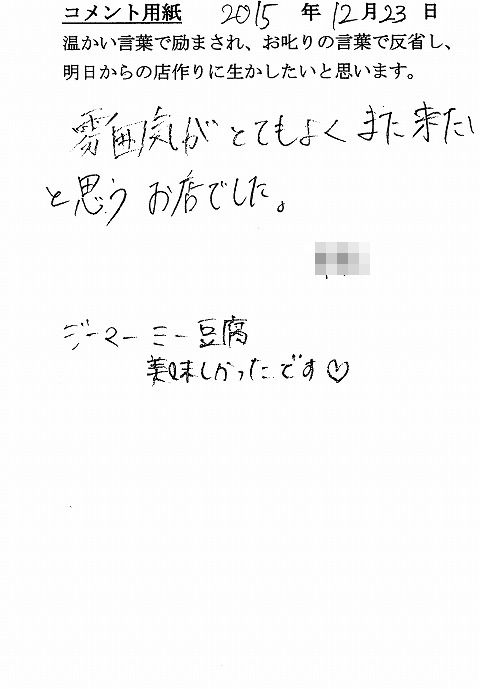 コメント用紙 2015 年 12月 23 日
温かい言葉で励まされ、お叱りの言葉で反省し、
明日からの店作りに生かしたいと思います。
雰囲気が とてもよく また 来たい
と思う お店でした。
ジーマーミー豆腐
美味しかったです♡